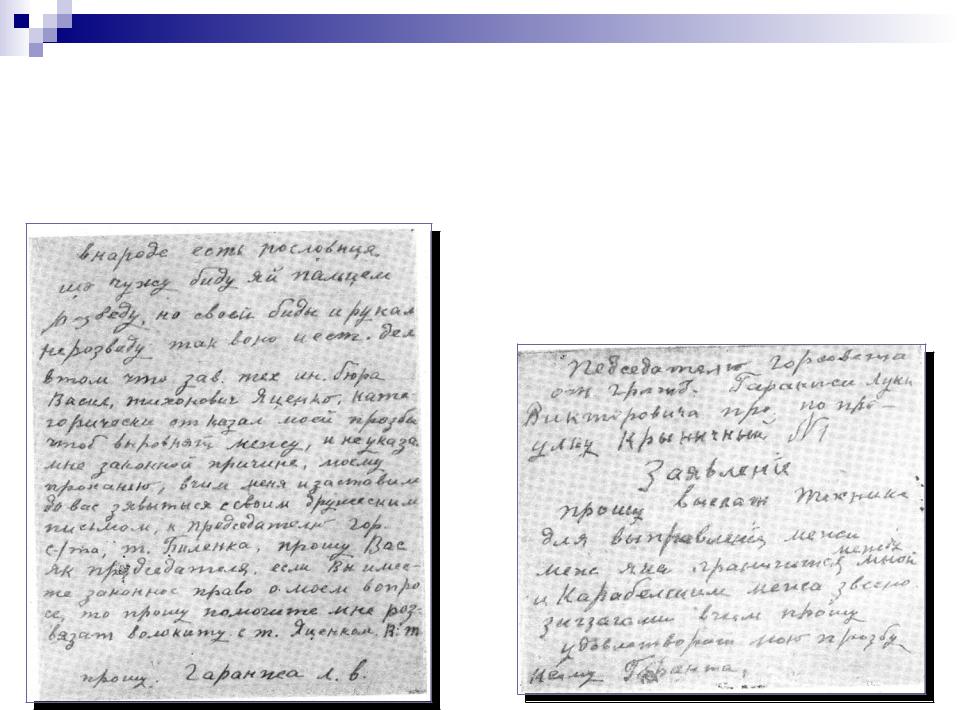 внароде есть пословица
що чужу биду яй пальцем
розведу, но своєй биды и рукам
нерозведу так воно иест. дел
втом что зав. тех ин. бюра
Васил, тихонович Яценко, кате
горически отказал моей прозбы
чтоб выровнят межу, и неуказа
мне законной причине, моєму
проханью, вчим меня изаставил
до вас зявыться своим дружеским
письмом, к председателю гор.
с/та, т. Биленка, прошу Вас
як председателя. если Вы имее-
те законное право о моєм вопро
се, то прошу помогите мне роз-
вязат волокиту с т. Яценком, В.Т
прошу. Гаранжа Л. В.
Педседателю горсовета
от граж. Гаранжи Луки
Викторовича про. по про-
улку Крыничный №1
Заявление
прошу выслат техника
для выправлений межи
меж яка граничится между мной
и Карабелским межа звсено
зигзагами вчим прошу
удовлетворит мою прозбу
Гаранжа,